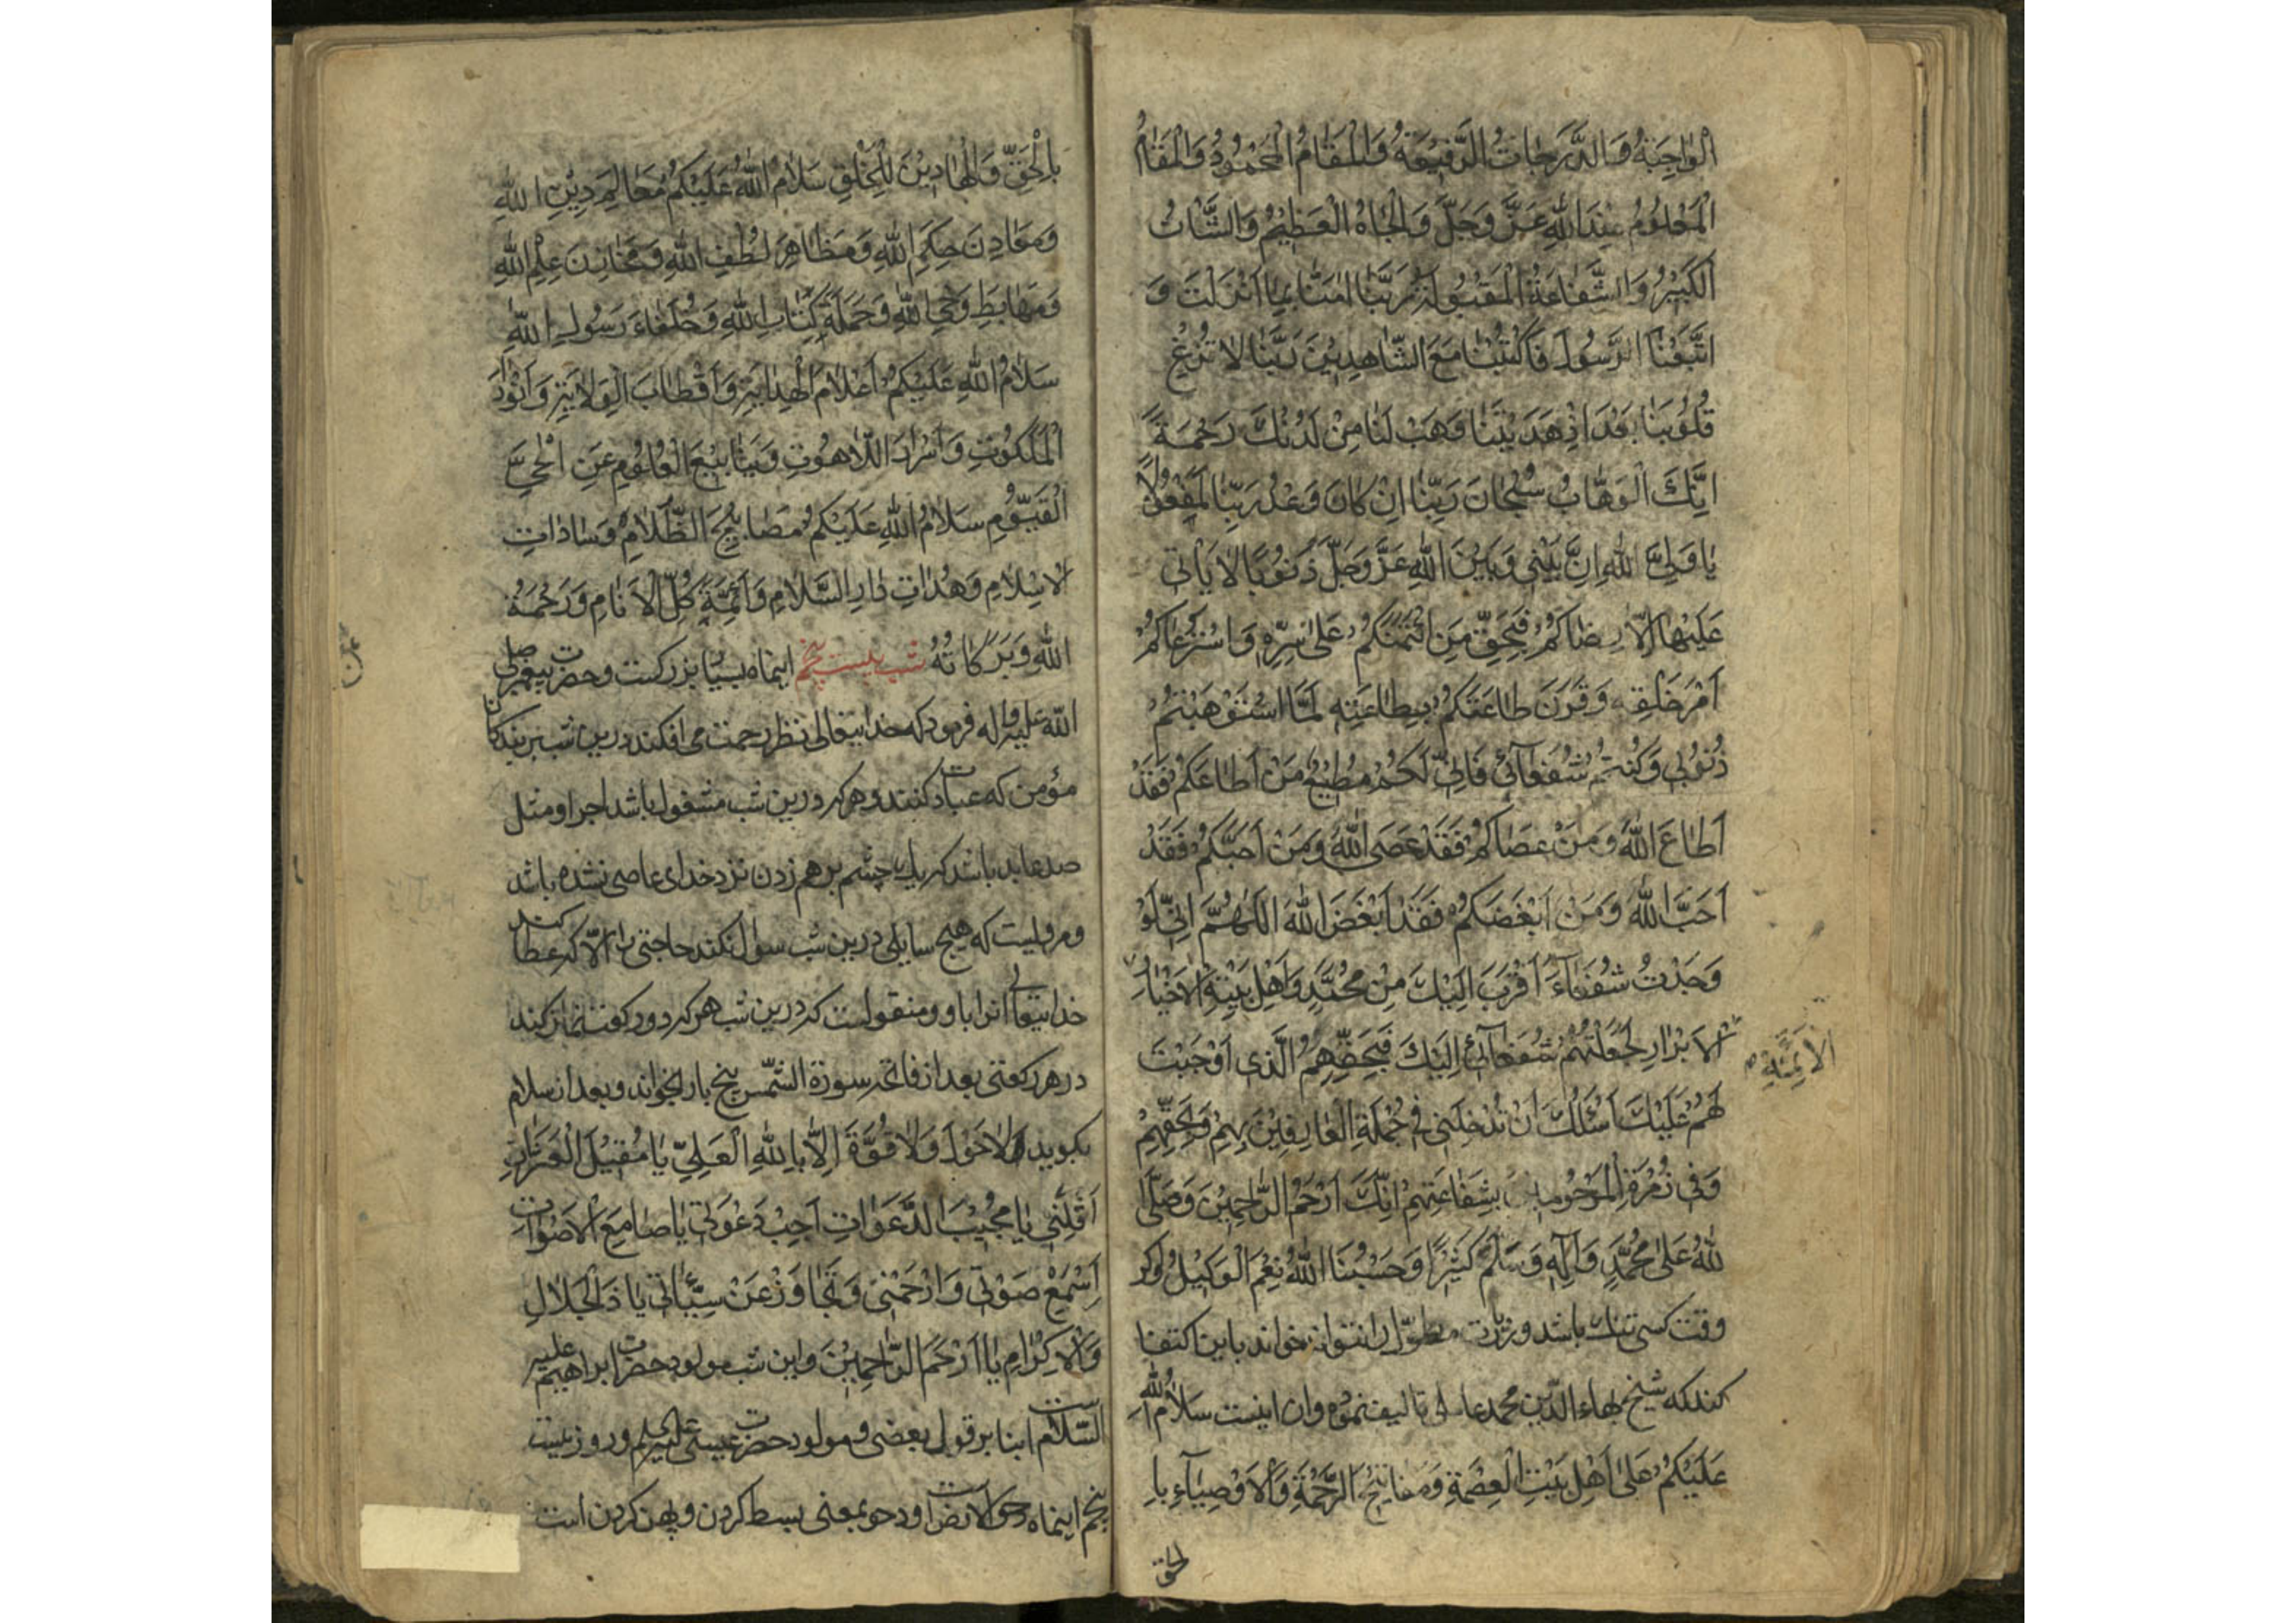 الْوَاجِبَةُ وَالدَّرَجَاتُ الرَّفِيعَةُ وَالْمَقَامُ الْمَحْمُودُ وَالْمَقَامُ
الْمَعْلُومُ عِنْدَ اللهِ عَزَّ وَجَلَّ وَالْجَاهُ الْعَظِيمُ وَالشَّانُ
الْكَبِيرُ وَالشَّفَاعَةُ الْمَقْبُولَةُ رَبَّنَا امَنَّا بِمَا اَنْزَلْتَ وَ
اتَّبَعْنَا الرَّسُولَ فَاكْتُبْنَا مَعَ الشَّاهِدِينَ رَبَّنَا لَا تُزِغْ
قُلُوبَنَا بَعْدَ اِذْ هَدَيْتَنَا وَهَبْ لَنَا مِنْ لَدُنْكَ رَحْمَةً
اِنَّكَ اَنْتَ الْوَهَّابُ سُبْحَانَ رَبِّنَا اِنْ كَانَ وَعْدُ رَبِّنَا لَمَفْعُولًا
يَا وَلِيَّ اللهِ اِنَّ بَيْنِي وَبَيْنَ اللهِ عَزَّ وَجَلَّ ذُنُوبًا لَا يَاْتِي
عَلَيْهَا اِلَّا رِضَاكُمْ فَبِحَقِّ مَنِ ائْتَمَنَكُمْ عَلٰى سِرِّهِ وَاسْتَرْعَاكُمْ
اَمْرَ خَلْقِهِ وَقَرَنَ طَاعَتَكُمْ بِطَاعَتِهِ لَمَّا اسْتَوْهَبْتُمْ
ذُنُوبِي وَكُنْتُمْ شُفَعَائِي فَاِنِّي لَكُمْ مُطِيعٌ مَنْ اَطَاعَكُمْ فَقَدْ
اَطَاعَ اللهَ وَمَنْ عَصَاكُمْ فَقَدْ عَصَى اللهَ وَمَنْ اَحَبَّكُمْ فَقَدْ
اَحَبَّ اللهَ وَمَنْ اَبْغَضَكُمْ فَقَدْ اَبْغَضَ اللهَ اَللّٰهُمَّ اِنِّي لَوْ
وَجَدْتُ شُفَعَاءَ اَقْرَبَ اِلَيْكَ مِنْ مُحَمَّدٍ وَاَهْلِ بَيْتِهِ الْاَخْيَارِ
الْاَئِمَّةِ
الْاَبْرَارِ لَجَعَلْتُهُمْ شُفَعَائِي اِلَيْكَ فَبِحَقِّهِمُ الَّذِي اَوْجَبْتَ
لَهُمْ عَلَيْكَ اَسْئَلُكَ اَنْ تُدْخِلَنِي فِي جُمْلَةِ الْعَارِفِينَ بِهِمْ وَبِحَقِّهِمْ
وَفِي زُمْرَةِ الْمَرْحُومِينَ بِشَفَاعَتِهِمْ اِنَّكَ اَرْحَمُ الرَّاحِمِينَ وَصَلَّى
اللهُ عَلٰى مُحَمَّدٍ وَآلِهِ وَسَلَّمَ كَثِيرًا وَحَسْبُنَا اللهُ نِعْمَ الْوَكِيلُ و اكر
وقت كسى تنك باشد و زيارت مطوّل را نتواند خواند باين اكتفا
كند كه شيخ بهاء الدّين محمد عاملى تاليف نموده وان اينست سَلَامُ اللهِ
عَلَيْكُمْ عَلٰى اَهْلِ بَيْتِ الْعِصْمَةِ وَمَفَاتِيحَ الرَّحْمَةِ وَالْاَوْصِيَاءِ بِا
لحق
بِالْحَقِّ وَالْهَادِينَ لِلْخَلْقِ سَلَامُ اللهِ عَلَيْكُمْ مَعَالِمَ دِينِ اللهِ
وَمَعَادِنَ حِكَمِ اللهِ وَمَظَاهِرَ لُطْفِ اللهِ وَمَخَازِنَ عِلْمِ اللهِ
وَمَهَابِطَ وَحْيِ اللهِ وَحَمَلَةَ كِتَابِ اللهِ وَخُلَفَاءَ رَسُولِ اللهِ
سَلَامُ اللهِ عَلَيْكُمْ اَعْلَامَ الْهِدَايَةِ وَاَقْطَابَ الْوِلَايَةِ وَاَنْوَارَ
الْمَلَكُوتِ وَاَسْرَارَ اللَّاهُوتِ وَيَنَابِيعَ الْعُلُومِ عَنِ الْحَيِّ
الْقَيُّومِ سَلَامُ اللهِ عَلَيْكُمْ مَصَابِيحَ الظَّلَامِ وَسَادَاتِ
الْاِسْلَامِ وَهُدَاتِ دَارِ السَّلَامِ وَاَئِمَّةَ كُلِّ الْاَنَامِ وَرَحْمَةُ
اللهِ وَبَرَكَاتُهُ شب بيست پنجم اينماه بسيار بزركست و حضرت پيغمبر صلى
الله عليه واله فرمود كه خدايتعالى نظر رحمت مى افكند درين شب بر بندكان
مؤمن كه عبادت كنند و هر كه درين شب مشغول باشد اجر او مثل
صد عابد باشد كه يك چشم بر هم زدن نزد خداى عاصى نشده باشد
و مرويست كه هيچ سايلى درين شب سوال نكند حاجتى را الّا كه عطا كند
خدايتعالى انرا باو و منقولست كه درين شب هر كه دو ركعت نماز كند
در هر ركعتى بعد از فاتحه سورة الشّمس پنج بار بخواند و بعد از سلام
بكويد لَا حَوْلَ وَلَا قُوَّةَ اِلَّا بِاللهِ الْعَلِيِّ يَا مُقِيلَ الْعَثَرَاتِ
اَقِلْنِي يَا مُجِيبَ الدَّعَوَاتِ اَجِبْ دَعْوَتِي يَا صَامِعَ الْاَصْوَاتِ
اِسْمَعْ صَوْتِي وَارْحَمْنِي وَتَجَاوَزْ عَنْ سَيِّئَاتِي يَا ذَا الْجَلَالِ
وَالْاِكْرَامِ يَا اَرْحَمَ الرَّاحِمِينَ و اين شب مولود حضرت ابراهيم عليه
السّلامست بنا بر قول بعضى و مولود حضرت عيسى و روز بيست
پنجم اينماه دحو الارض است و دحو بمعنى بسط كردن و پهن كردن است